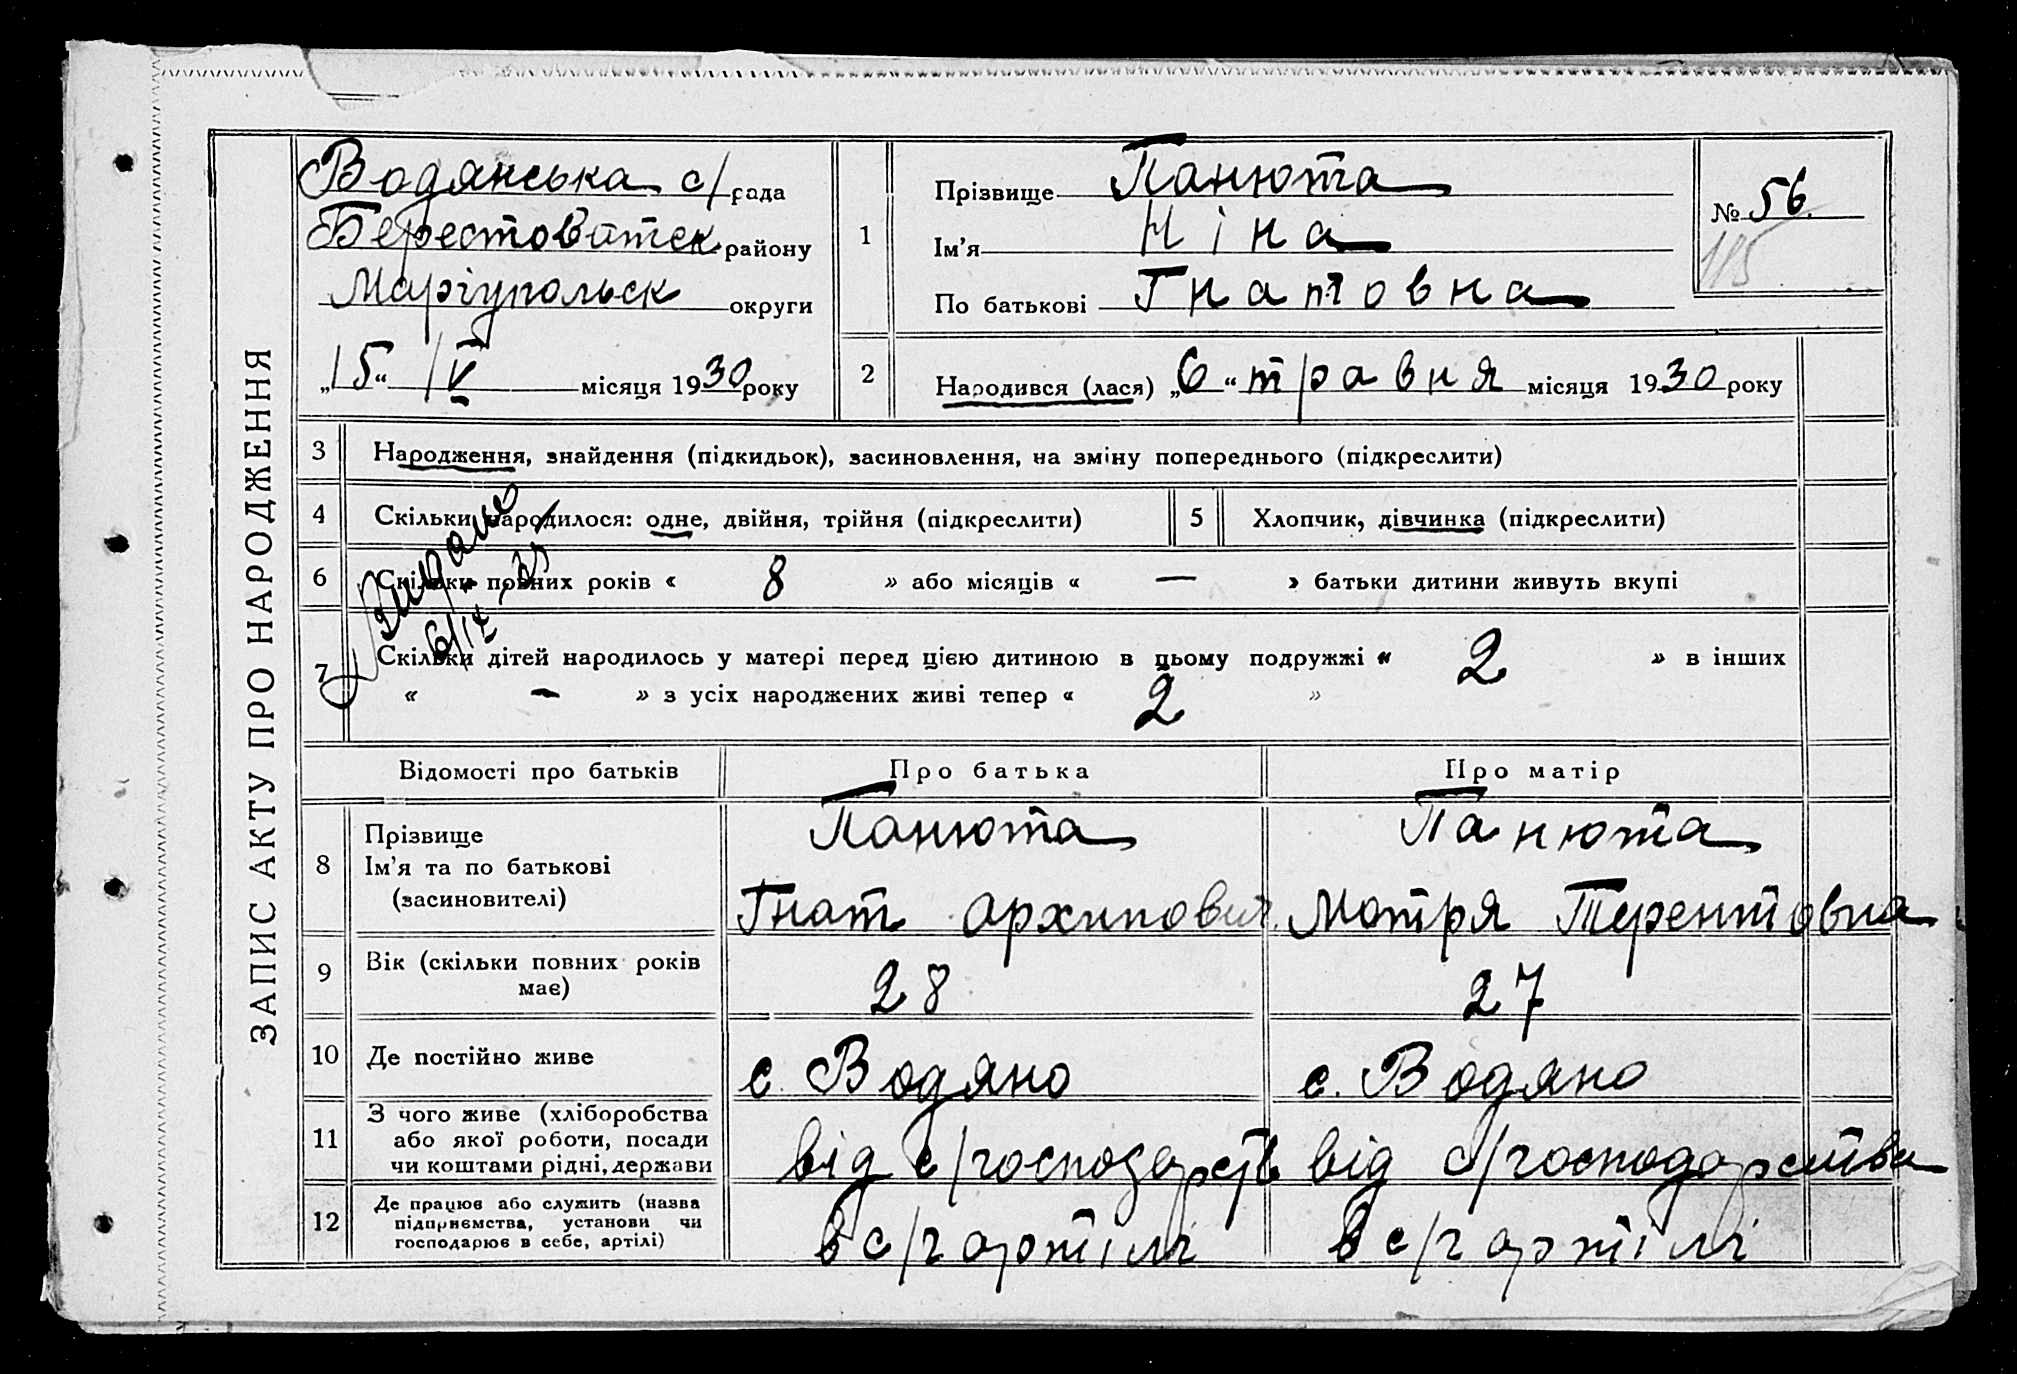 ЗАПИС АКТУ ПРО НАРОДЖЕННЯ
Водянська с/рада
Берестоватск. району
Маріупольск округи
„15“ IV місяця 1930 року
1
Прізвище Панюта
Ім’я Ніна
По батькові Гнатовна
№ 56.
115
2 Народився (лася) „6“ травня місяця 1930 року
3 Народження, знайдення (підкидьок), засиновлення, на зміну попереднього (підкреслити)
4 Скільки народилося: одне, двійня, трійня (підкреслити)
5 Хлопчик, дівчинка (підкреслити)
6 Скільки повних років « 8 » або місяців « — » батьки дитини живуть вкупі
7 Скільки дітей народилось у матері перед цією дитиною в цьому подружжі « 2 » в інших
« — » з усіх народжених живі тепер « 2 »
Відомості про батьків Про батька Про матір
8 Прізвище
Ім’я та по батькові
(засиновителі)
Панюта
Гнат Архипович.
Панюта
Мотря Терентовна
9 Вік (скільки повних років
має)
28 27
10 Де постійно живе с. Водяно с. Водяно
11 З чого живе (хліборобства
або якої роботи, посади
чи коштами рідні, держави
від с/господарств від с/господарства
12 Де працює або служить (назва
підприємства, установи чи
господарює в себе, артілі)
в с/г артілі в с/г артілі